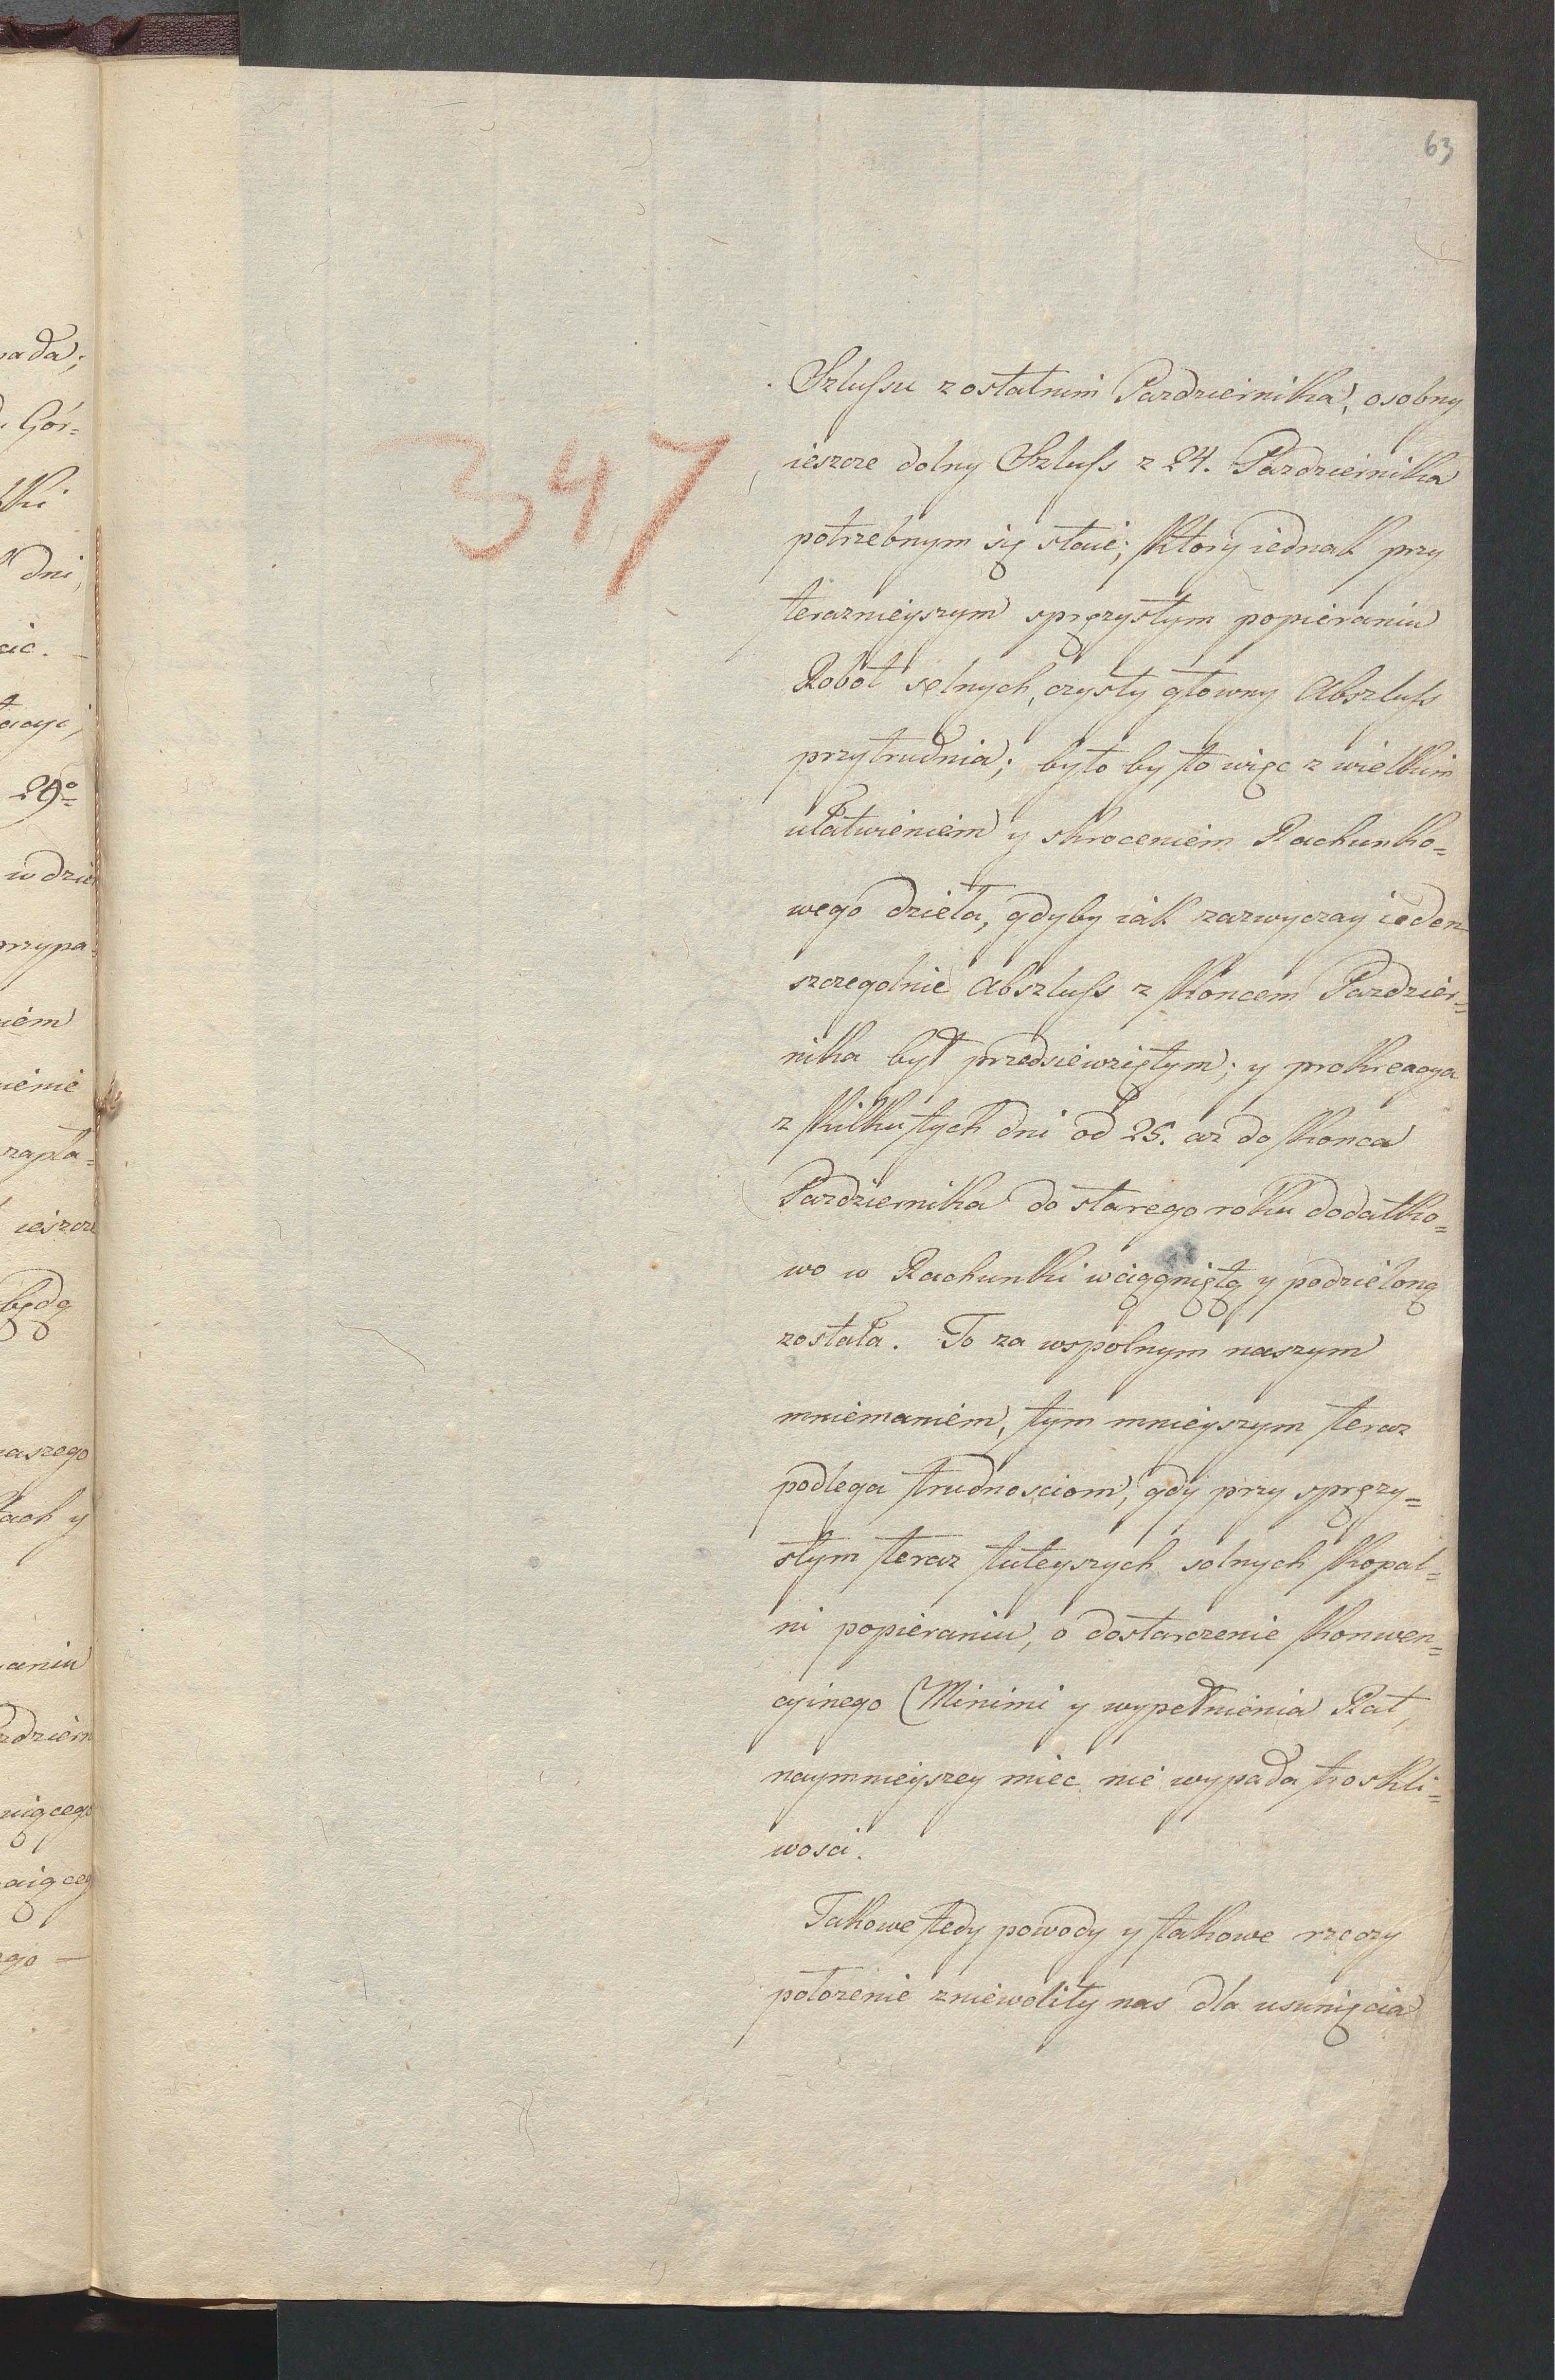 63
347
Szlufsu z ostatnim Pazdziernika, osobny
ieszcze dolny Szlufs z 24. Pazdziernika
potrzebnym się staie; ktory iednak przy
terazniejszym sprężystym popieraniu
Robot solnych, czysty głowny Abszlufs
przytrudnia; było by to więc z wielkim
ułatwieniem y skroceniem Rachunko=
wego dzieła, gdyby iak zazwyczay ieden
szczegolnie Abszlufs z koncem Pazdzier=
nika był przedsiewziętym; y prokreacya
z kilku tych dni od 25. az do konca
Pazdziernika do starego roku dodatko=
wo w Rachunki wciągniętą y podzieloną
została. To za wspolnym naszym
mniemaniem, tym mnieyszym teraz
podlega trudnosciom, gdy przy spręży=
stym teraz tuteyszych solnych kopal=
ni popieraniu, o dostarczenie konwen=
cyinego Minimi y wypełnienia Rat,
naymnieyszey miec nie wypada troskli=
wosci.
Takowe tedy powody y takowe rzeczy
położenie zniewoliły nas dla usunięcia
pada;
Gór=
dni
29º
w dzień
przypa=
zapła=
ieszcze
będą
naszego